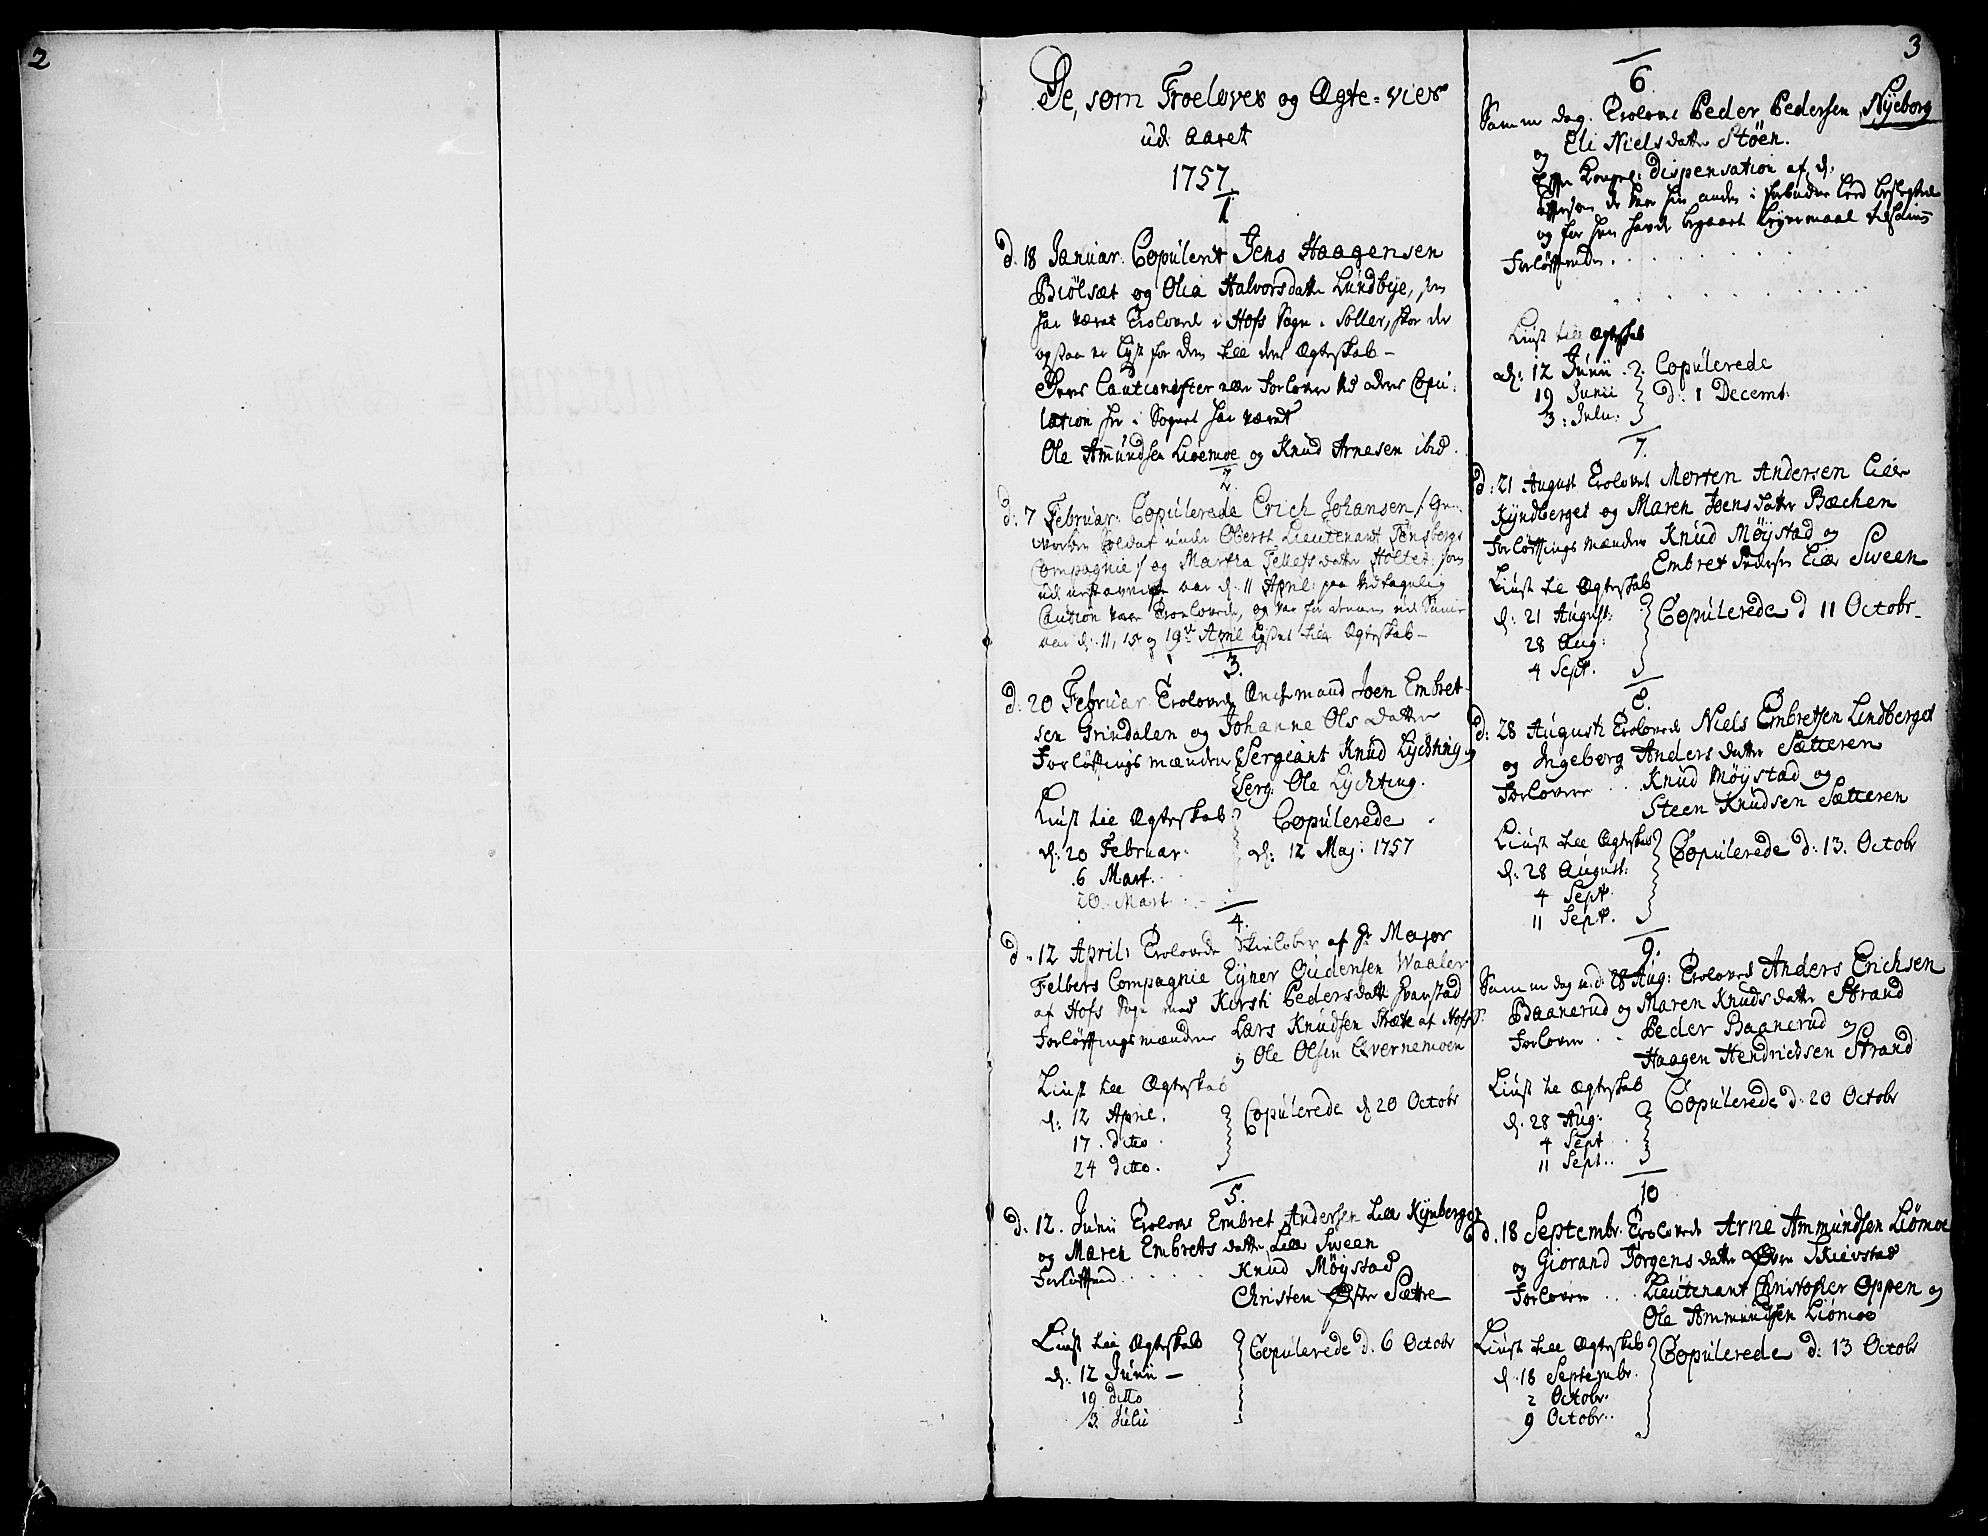 2
3
De, som Troeloves og Ægte-vies
udi Aaret
1757
1.
d: 18 Januar: Copulerit Jens Haagensen
Biölset og Olia Halvorsdatter Lundbye, som
har været Trolovede i Hofs Sogn i Soller, hvor der
ogsaa er lyst for dem till deres Ægteskab -
Deres Cautionister eller Forlovere ved deres Copu-
lation her i Sognet har været
Ole Amundsen Liöemoe og Knud Arnesen ibid.
2.
d: 7 Februar: Copulerede Erich Johansen /:
Soldat under Oberst Lieutenant Tönsbergs
Compagnie/ og Martha Tellefsdatter Holter: som
udi Aar d: 11 April: paa
Caution vare Troelovede, og
Aar d: 11, 15 og 19de April lyst till Ægteskab -
3.
d: 20 Februar Trolovede Enchemand Joen Embret-
sen Grindalen og Johanne Ols datter
Forlöftningsmændene Sergeant Knud Lychting og
Serg: Ole Lychting.
Liust till Ægteskab
d: 20 Februar.
6 Mart.
20. Mart.
Copulerede
d: 12 Maj: 1757
4.
d: 12 April: Trolovede Skielöber af Hr Major
Felbers Compagnie Ejner Gudensen Waaler
af Hofs Sogn med Kirsti Pedersdatter Svanstad
Forlöftningsmændene Lars Knudsen af Hofs S:
og Ole Olsen Qvernemoen
Liust till Ægteskab
d: 12 April.
17. ditto
24 ditto.
Copulerede d 20 Octobr
5.
d: 12. Junii Trolovet Embret Andersen Lille Kynberget
og Maren Embrets datter Lille Sween
Knud Möystad
Christen Öster Sættre
Liust till Ægteskab
d: 12 Junii -
19 ditto
3. Julii
Copulerede d. 6 Octobr
6.
Samme dag. Trolovet Peder Pedersen Nyeborg
og Eli Niels datter Stöen.
Efter Kongel: Dispensation af d:
eftersom de var hinanden i forbudne Leed beslegtede
og for hen havde begaaet Leyermaal tilsamen
Liust till Ægteskab
d: 12 Junii
19 Junii
3: Julii.
Copulerede
d: 1 Decemt:
7.
d: 21 August Trolovet Morten Andersen Lille
Kyndberget og Maren Joens datter Bæchen
Forlöftnings mændene Knud Möystad og
Embret Pedersen Lille Sween
Liust till Ægteskab
d: 21 August:
28 Aug:
4 Sept.
Copulerede d 11 Octobr-
8.
d: 28 Augusti Trolovede Niels Embretsen Lindberget
og Ingeborg Anders datter Sætteren
Forlovere .. Knud Möystad og
Steen Knudsen Sætteren
Liust till Ægteskab
d: 28 August:
4 Sept.
11 Sept.
Copulerede d: 13. Octobr
9.
Samme dag d: 28 Aug: Trolovet Anders Erichsen
Baanerud og Maren Knuds datter Strand
Forlovere .. Peder Baanerud og
Haagen Hendrichsen Strand
Liust till Ægteskab
d. 28 Aug:
4 Sept
11 Sept..
Copulerede d: 20 Octobr
10
d. 18 Septembr. Trolovede Arne Ammundsen Liömoe
og Giorand Jörgens datter Övre Skievstad
Forlovere ... Lieutenant Christopher Oppen og
Ole Ammundsen Liömoe
Liust till Ægteskab
d. 18 Septembr.
2 Octobr.
9 Octobr..
Copulerede d: 13 Octobr